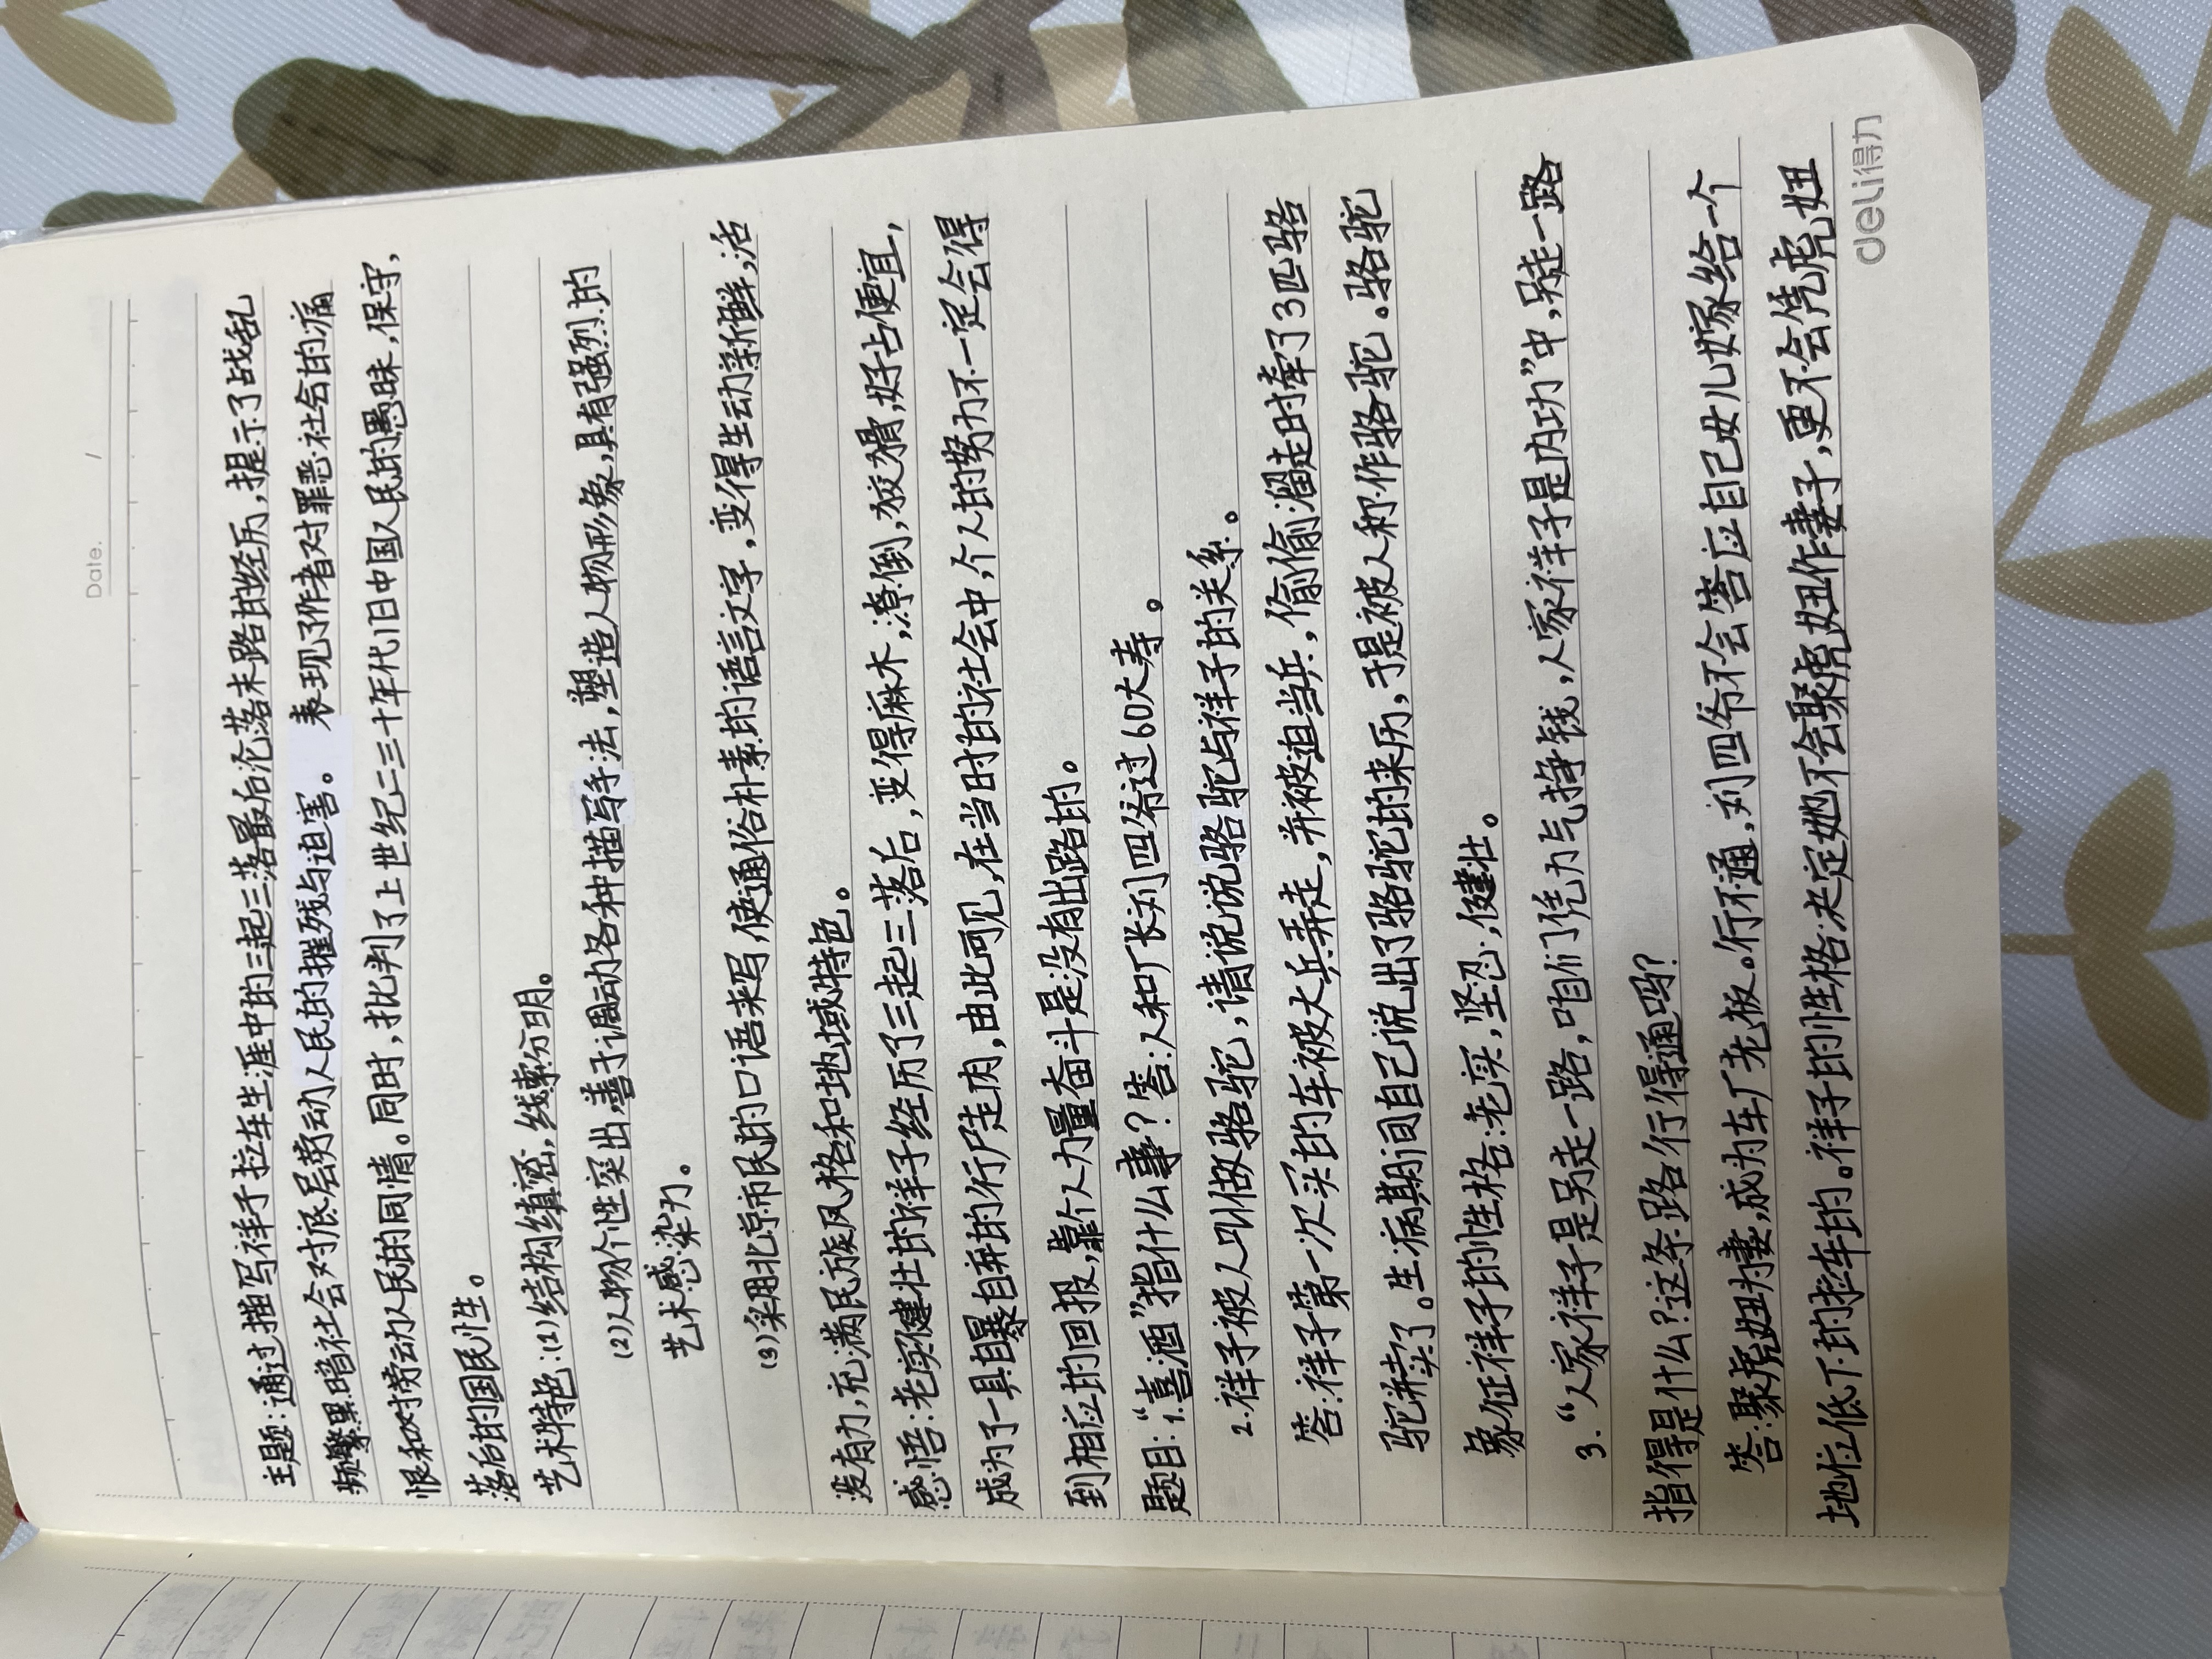 Date. /
主题:通过描写祥子拉车生涯中的三起三落最后沦落末路的经历,提示了战乱
频繁黑暗社会对底层劳动人民的摧残与迫害。 表现了作者对罪恶社会的痛
恨和对劳动人民的同情。同时,批判了上世纪二三十年代旧中国人民的愚昧,保守,
落后的国民性。
艺术特色:(1)结构缜密,线索分明。
(2)人物个性突出,善于调动各种描写手法,塑造人物形象,具有强烈的
艺术感染力。
(3)采用北京市民的口语来写,使通俗朴素的语言文字,变得生动新鲜,活
没有力,充满民族风格和地域特色。
感悟:老实健壮的祥子经历了三起三落后,变得麻木,潦倒,狡猾,好占便宜,
成为了一具自暴自弃的行尸走肉,由此可见,在当时的社会中,个人的努力不一定会得
到相应的回报,靠个人力量奋斗是没有出路的。
题目:1.“喜酒”指什么事?答:人和厂长刘四爷过60大寿。
2.祥子被人叫做骆驼,请说说骆驼与祥子的关系。
答:祥子第一次买的车被大兵弄走,并被迫当兵,偷偷溜走时牵了3匹骆
驼并卖了。生病期间自己说出了骆驼的来历,于是被人称作骆驼。骆驼
象征祥子的性格:老实,坚忍,健壮。
3.“人家祥子是另走一路,咱们凭力气挣钱,人家祥子是内功”中,另走一路
指得是什么?这条路行得通吗?
答:聚虎妞为妻,成为车厂老板。行不通,刘四爷不会答应自己女儿嫁给一个
地位低下的拉车的。祥子的性格决定她不会聚虎妞作妻子,更不会凭虎妞
deli得力